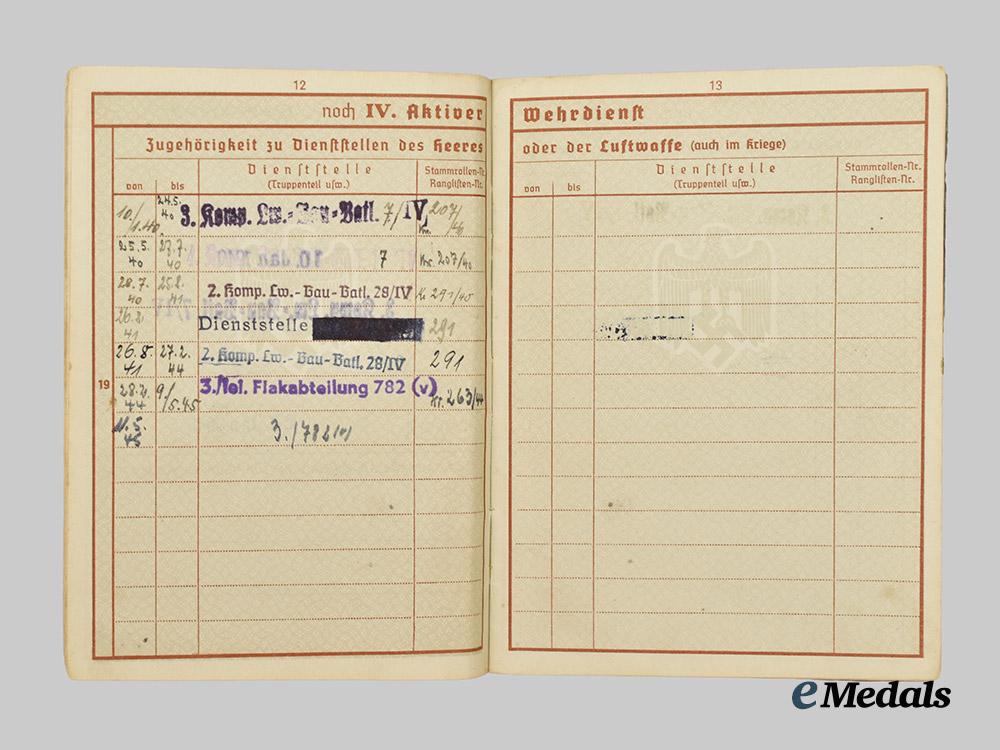 12
noch IV. Aktiver
Zugehörigkeit zu Dienststellen des Heeres
von
bis
Dienststelle
(Truppenteil usw.)
Stammrollen-Nr.
Ranglisten-Nr.
10./1.40
24.5.40
3. Komp. Lw.-Bau-Batl. 7/IV
207/40
25.5.40
23.7.40
7
Nr. 207/40
28.7.40
25.8.41
2. Komp. Lw.-Bau-Batl. 28/IV
291/40
26.2.41
Dienststelle
291
26.8.41
27.2.44
2. Komp. Lw.-Bau-Batl. 28/IV
291
19
28.2.44
9/5.45
3./lei. Flakabteilung 782 (v)
Nr. 263/44
11.5.45
3./782(v)
13
Wehrdienst
oder der Luftwaffe (auch im Kriege)
von
bis
Dienststelle
(Truppenteil usw.)
Stammrollen-Nr.
Ranglisten-Nr.
eMedals